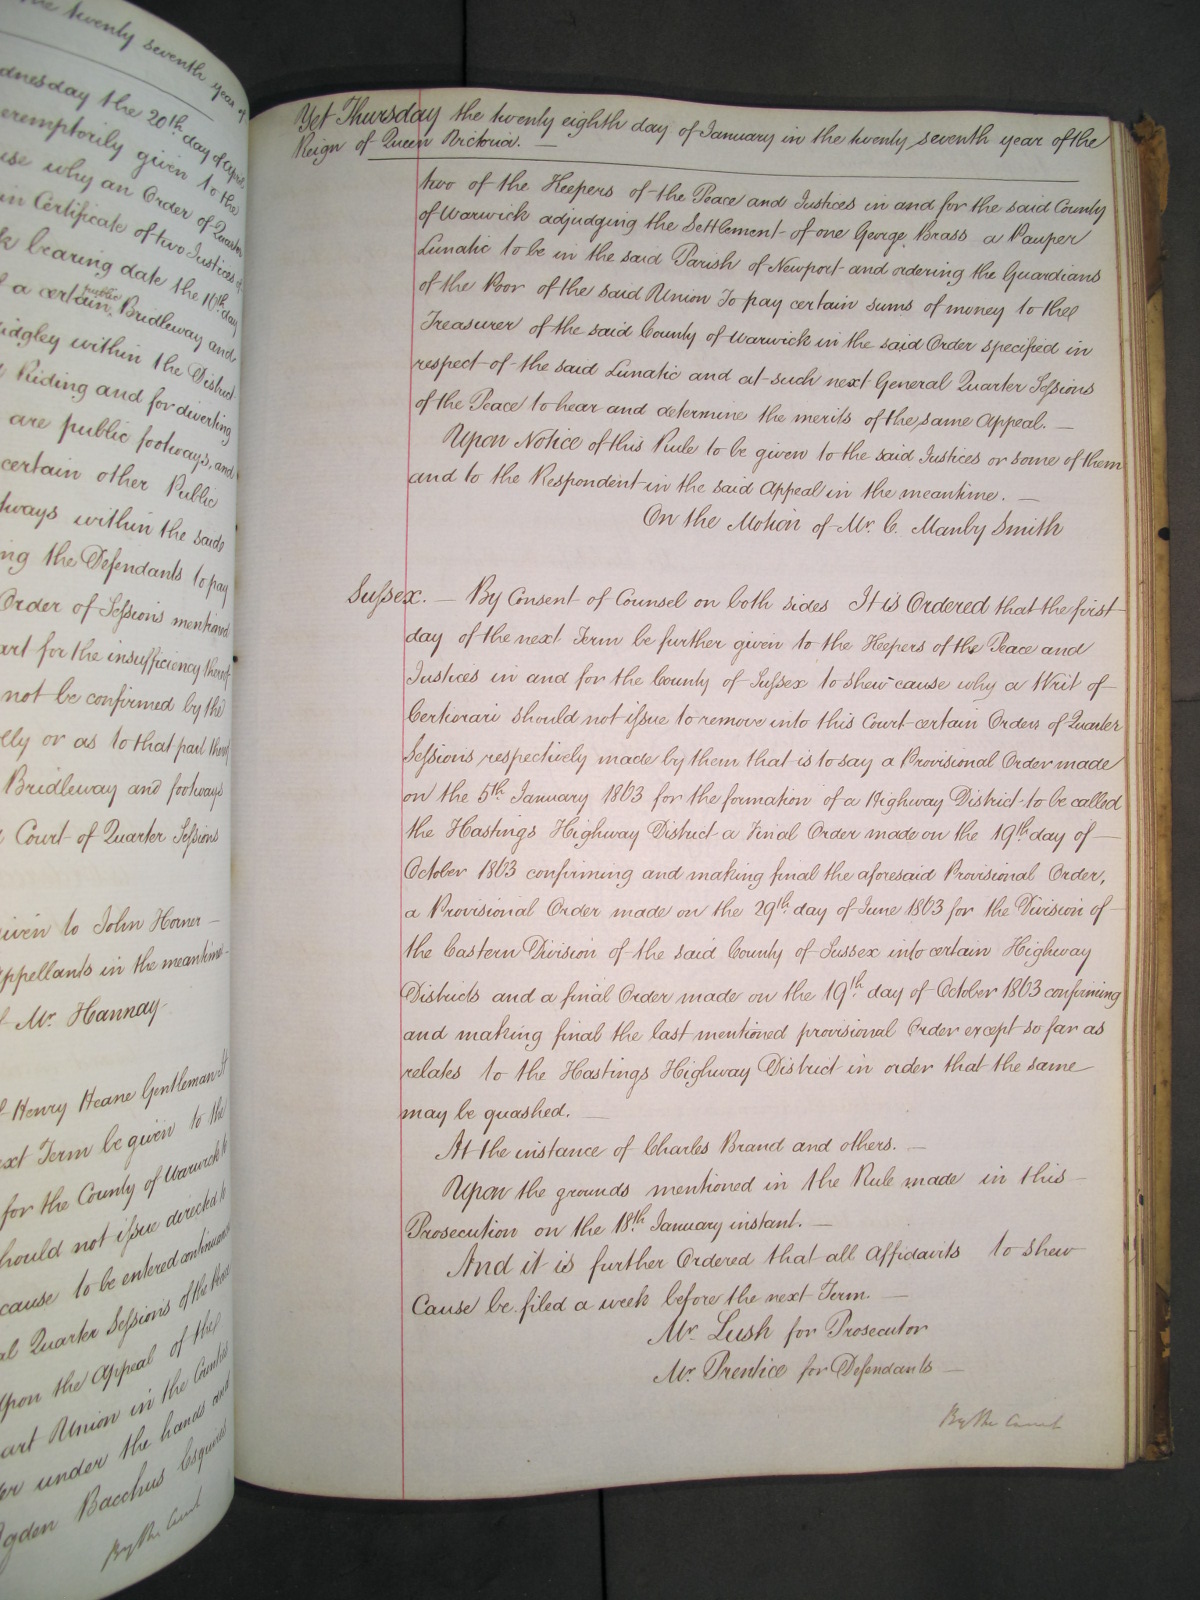 the twenty seventh year of
dnesday the 20th day of April
eremptorily given to the
use why an Order of Quarter
in Certificate of two Justices of
k bearing date the 10th day
f a certain public Bridleway and
idgley within the District
Riding and for diverting
are public footways, and
certain other Public
tways within the said
ng the Defendants to pay
Order of Sessions mentioned
art for the insufficiency thereof
not be confirmed by the
lly or as to that part
Bridleway and footways
Court of Quarter Sessions
iven to John Horner —
Appellants in the meantime —
f Mr. Hannay
f Henry Heane Gentleman It
ext Term be given to the
for the County of Warwick
hould not issue directed to
cause to be entered continuances
al Quarter Sessions of the
upon the Appeal of the
ort Union in the Counties
er under the hands and
gden Bacchus Esquires
By the Court
Yet Thursday the twenty eighth day of January in the twenty seventh year of the
Reign of Queen Victoria. —
two of the Keepers of the Peace and Justices in and for the said County
of Warwick adjudging the Settlement of one George Brass a Pauper
Lunatic to be in the said Parish of Newport and ordering the Guardians
of the Poor of the said Union To pay certain sums of money to the
Treasurer of the said County of Warwick in the said Order specified in
respect of the said Lunatic and at such next General Quarter Sessions
of the Peace to hear and determine the merits of the same Appeal. —
Upon Notice of this Rule to be given to the said Justices or some of them
and to the Respondent in the said Appeal in the meantime. —
On the Motion of Mr. C. Manby Smith
Sussex. — By Consent of Counsel on both sides It is Ordered that the first
day of the next Term be further given to the Keepers of the Peace and
Justices in and for the County of Sussex to shew cause why a Writ of
Certiorari should not issue to remove into this Court certain Orders of Quarter
Sessions respectively made by them that is to say a Provisional Order made
on the 5th January 1863 for the formation of a Highway District to be called
the Hastings Highway District a Final Order made on the 19th day of —
October 1863 confirming and making final the aforesaid Provisional Order,
a Provisional Order made on the 29th day of June 1863 for the Division of
the Eastern Division of the said County of Sussex into certain Highway
Districts and a final Order made on the 19th day of October 1863 confirming
and making final the last mentioned provisional Order except so far as
relates to the Hastings Highway District in order that the same
may be quashed. —
At the instance of Charles Brand and others. —
Upon the grounds mentioned in the Rule made in this —
Prosecution on the 18th January instant. —
And it is further Ordered that all Affidavits to shew
Cause be filed a week before the next Term. —
Mr. Lush for Prosecutor
Mr. Prentice for Defendants —
By the Court